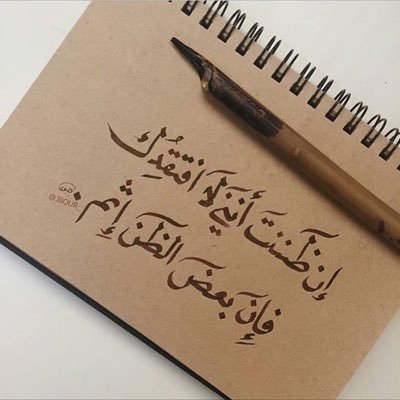 إن ظننت أنني لا افتقدك
فإن بعض الظن إثم
@JBOUR_